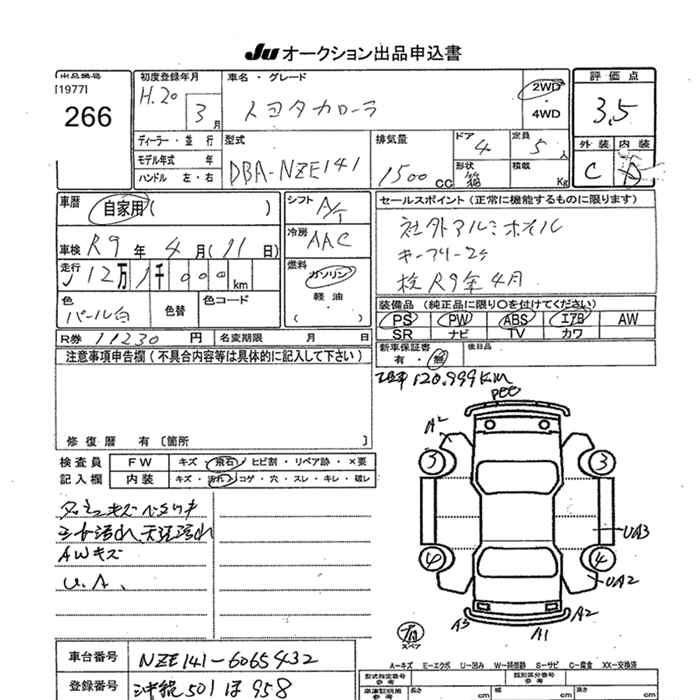 Ju オークション出品申込書
出品番号
[1977]
266
初度登録年月
H.20 3月
車名・グレード
トヨタカローラ
2WD
・
4WD
評価点
3.5
外装 内装
C D
ディーラー・並行
モデル年式 年
ハンドル 左・右
型式
DBA-NZE141
排気量
1500cc
ドア
4
形状
定員
5人
積載
Kg
車歴
自家用( )
車検 R9年4月(11日)
走行
12万1千000km
色
パール白
色替
色コード
シフト
A/T
冷房
AAC
燃料
ガソリン
軽油
( )
セールスポイント(正常に機能するものに限ります)
社外アルミホイル
キーフリー
検R9年4月
装備品(純正品に限り○を付けてください)
PS PW ABS エアB AW
SR ナビ TV カワ
R券 11230円 名変期限 月 日
新車保証書
有・無
後日品
注意事項申告欄(不具合内容等は具体的に記入して下さい)
修復歴 有〔箇所 〕
120,999KM
検査員
記入欄
FW キズ・飛石・ヒビ割・リペア跡・×要
内装 キズ・汚れ・コゲ・穴・スレ・キレ・破レ
シート汚れ、天張汚れ
AWキズ
U.A.
A2
5 3
UA3
6 4
UA2
A3 A1 A2
スペア
車台番号 NZE141-6065432
登録番号 沖縄501ほ958
A-キズ E-エクボ U-凹み W-補修跡 S-サビ C-腐食 XX-交換済
型式指定番号
参考
類別区分番号
参考
長さ cm 幅 cm 高さ cm